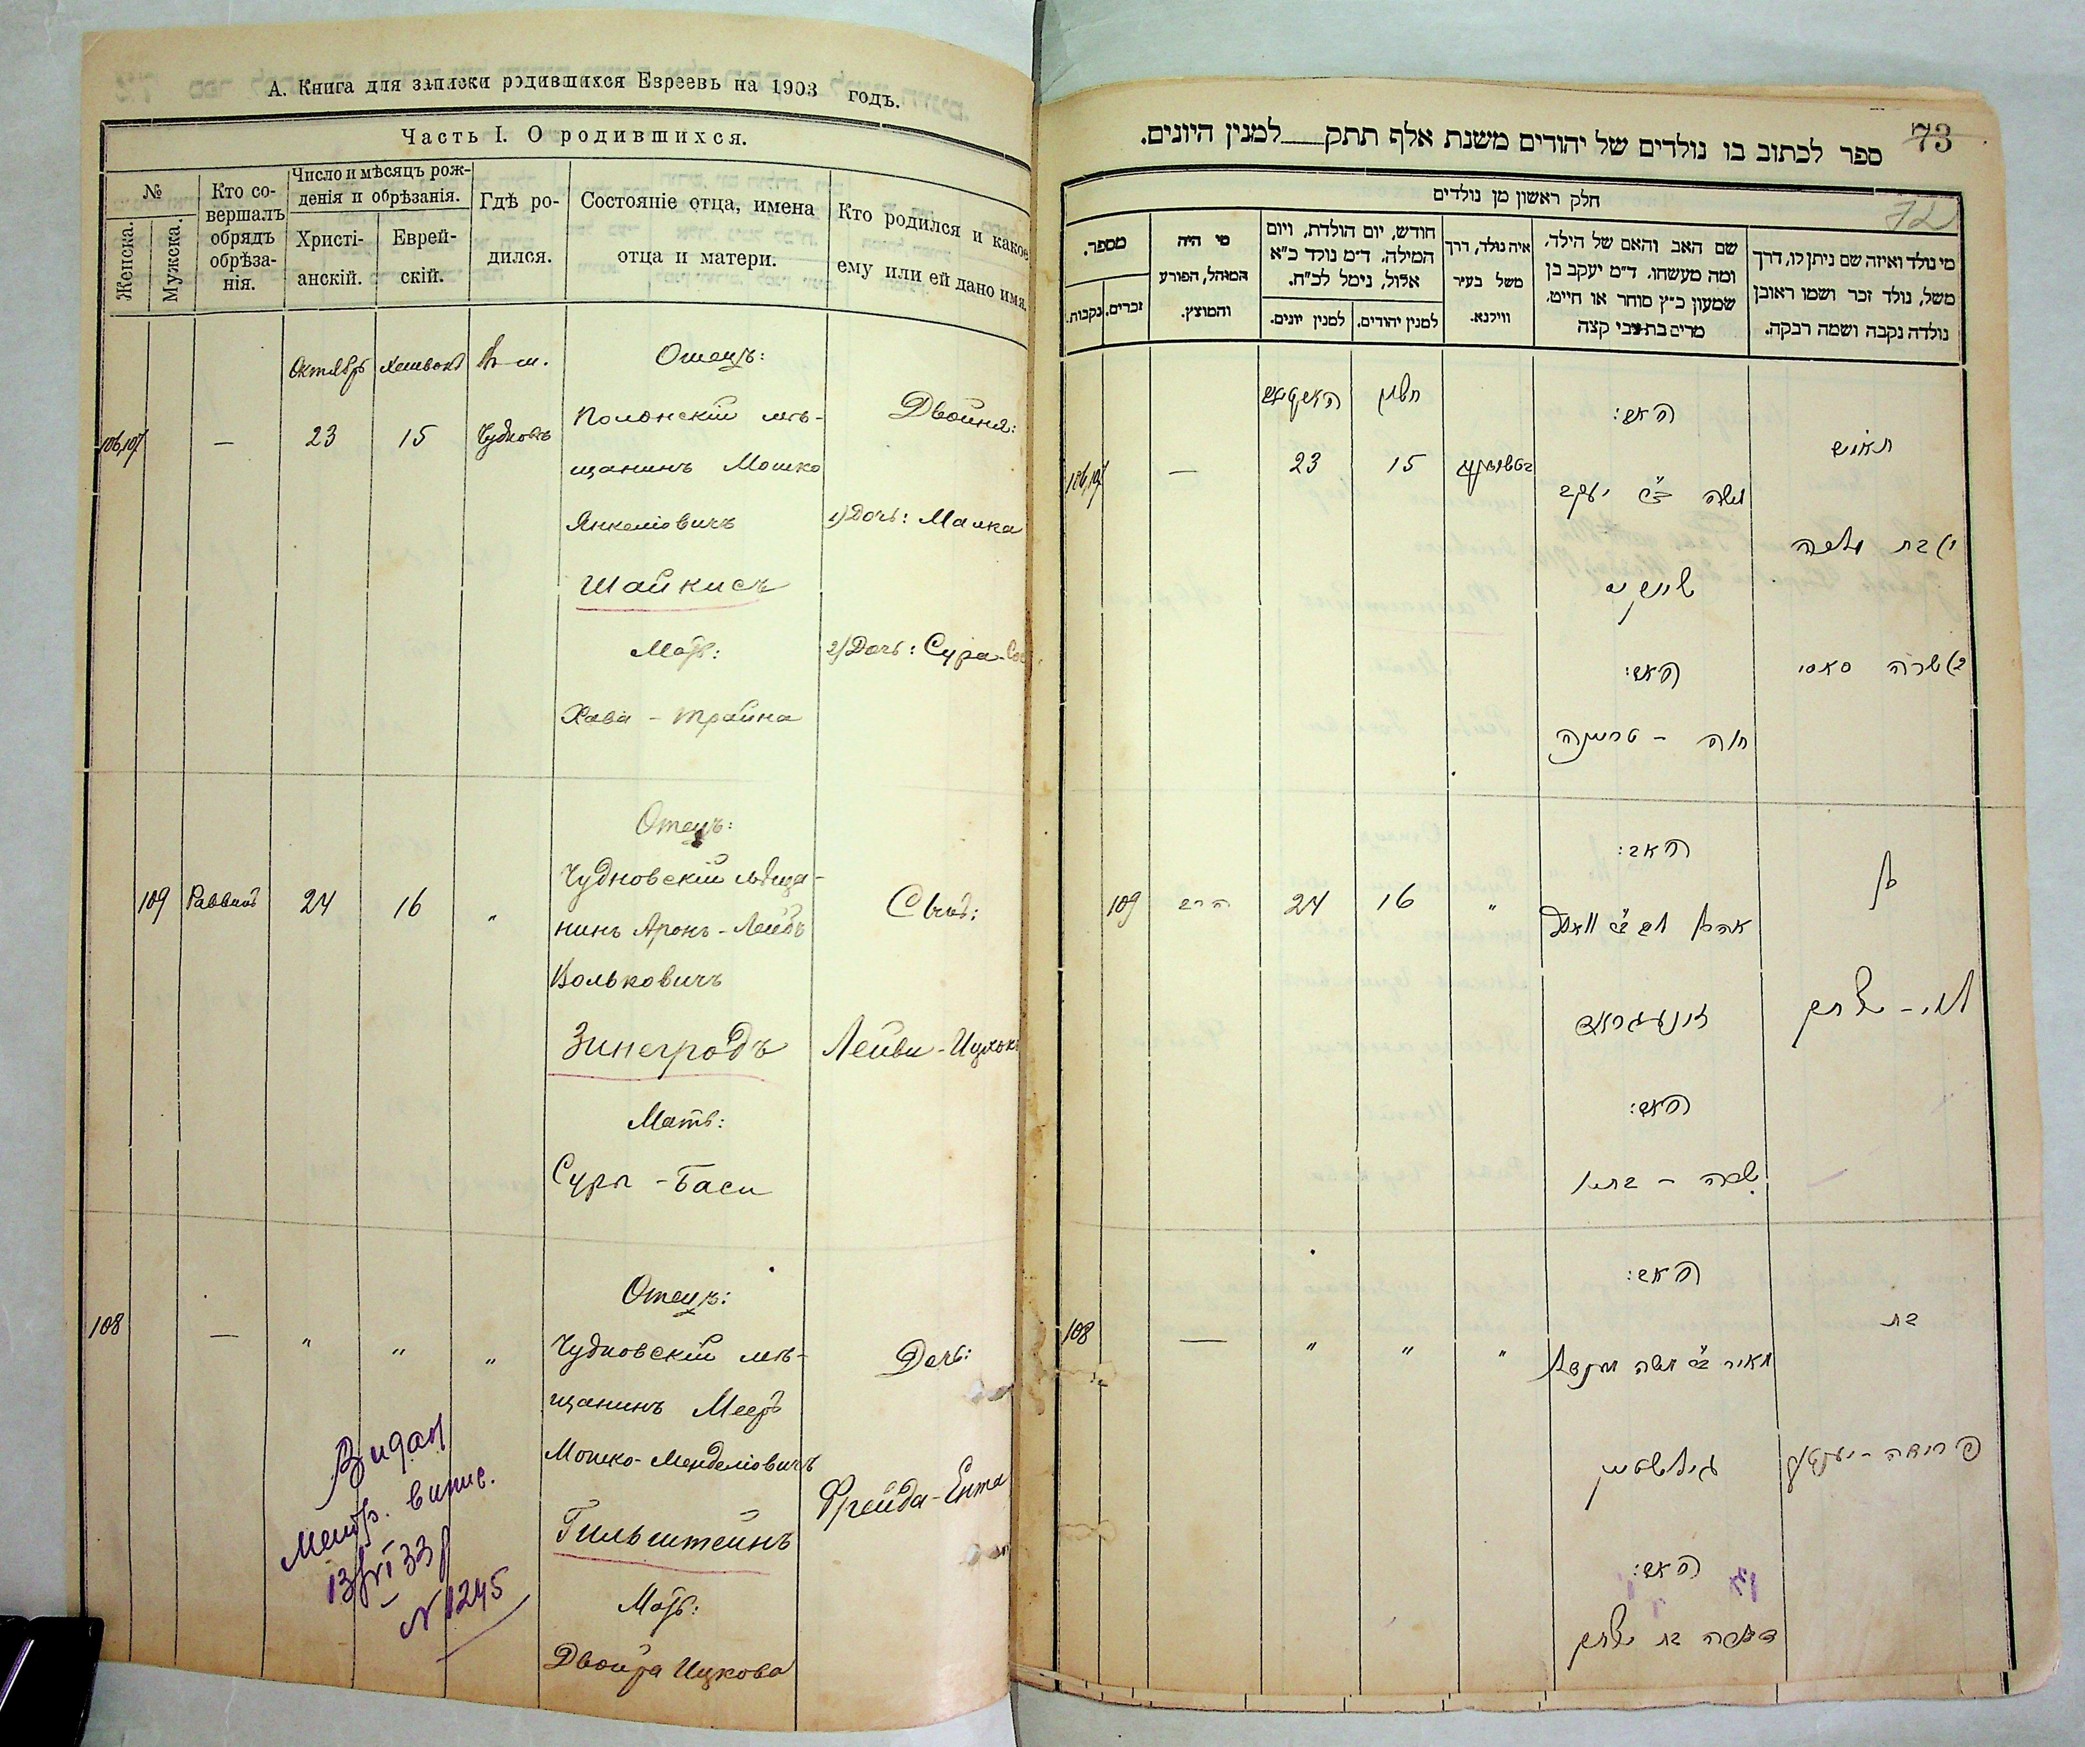 А. Книга для записки родившихся Евреевъ на 1903 годъ.
Часть I. О родившихся.
№
Женска.
Мужска.
Кто со-
вершалъ
обрядъ
обрѣза-
нія.
Число и мѣсяцъ рож-
денія и обрѣзанія.
Христі-
анскій.
Еврей-
скій.
Гдѣ ро-
дился.
Состояніе отца, имена
отца и матери.
Кто родился и какое
ему или ей дано имя.
Октябрь
В м.
Отецъ:
106,107
—
23
15
Чудновъ
Полонскій мѣ-
щанинъ Мошко
Янкеліовичъ
Шайкисъ
Мать:
Хава - Трайна
Двойня:
1) Дочь: Малка
2) Дочь: Сура-
Отецъ:
109
Раввинъ
24
16
"
Чудновскій мѣща-
нинъ Аронъ-Лейбъ
Вольковичъ
Зинегродъ
Мать:
Сура - Бася
Сынъ:
Лейви-Ицхокъ
Отецъ:
108
—
"
"
"
Чудновскій мѣ-
щанинъ Мееръ
Мошко-Менделіовичъ
Гильштейнъ
Мать:
Двойра Ицкова
Дочь:
Фрейда-Ента
Видан
Метр. випис.
13/VI 33 р
N 1245
73
72
ספר לכתוב בו נולדים של יהודים משנת אלף תתק___למנין היונים.
חלק ראשון מן נולדים
מי נולד ואיזה שם ניתן לו, דרך
משל, נולד זכר ושמו ראובן
נולדה נקבה ושמה רבקה.
שם האב והאם של הילד,
ומה מעשהו. ד"מ יעקב בן
שמעון כ"ץ סוחר או חייט,
מרים בת צבי קצה
איה נולד, דרך
משל בעיר
ווילנא.
חודש, יום הולדת, ויום
המילה. ד"מ נולד כ"א
אלול, נימל לכ"ח.
למנין יהודים.
למנין יונים.
מי היה
המוהל, הפורע
והמוצץ.
מספר.
זכרים.
נקבות.
חשון
האב:
תאומים
106,107
—
23
15
משה ב"ר יעקב
שייקיס
1) בת מלכה
האם:
2) שרה סאסי
חוה - טריינה
האב:
בן
109
הרב
24
16
"
אהרן ליב ב"ר וואלף
זינעגראד
לוי - יצחק
האם:
שרה - באסיא
האב:
בת
108
—
"
"
"
מאיר ב"ר משה מענדל
גילשטיין
פריידה - יענטא
האם:
דבורה בת יצחק